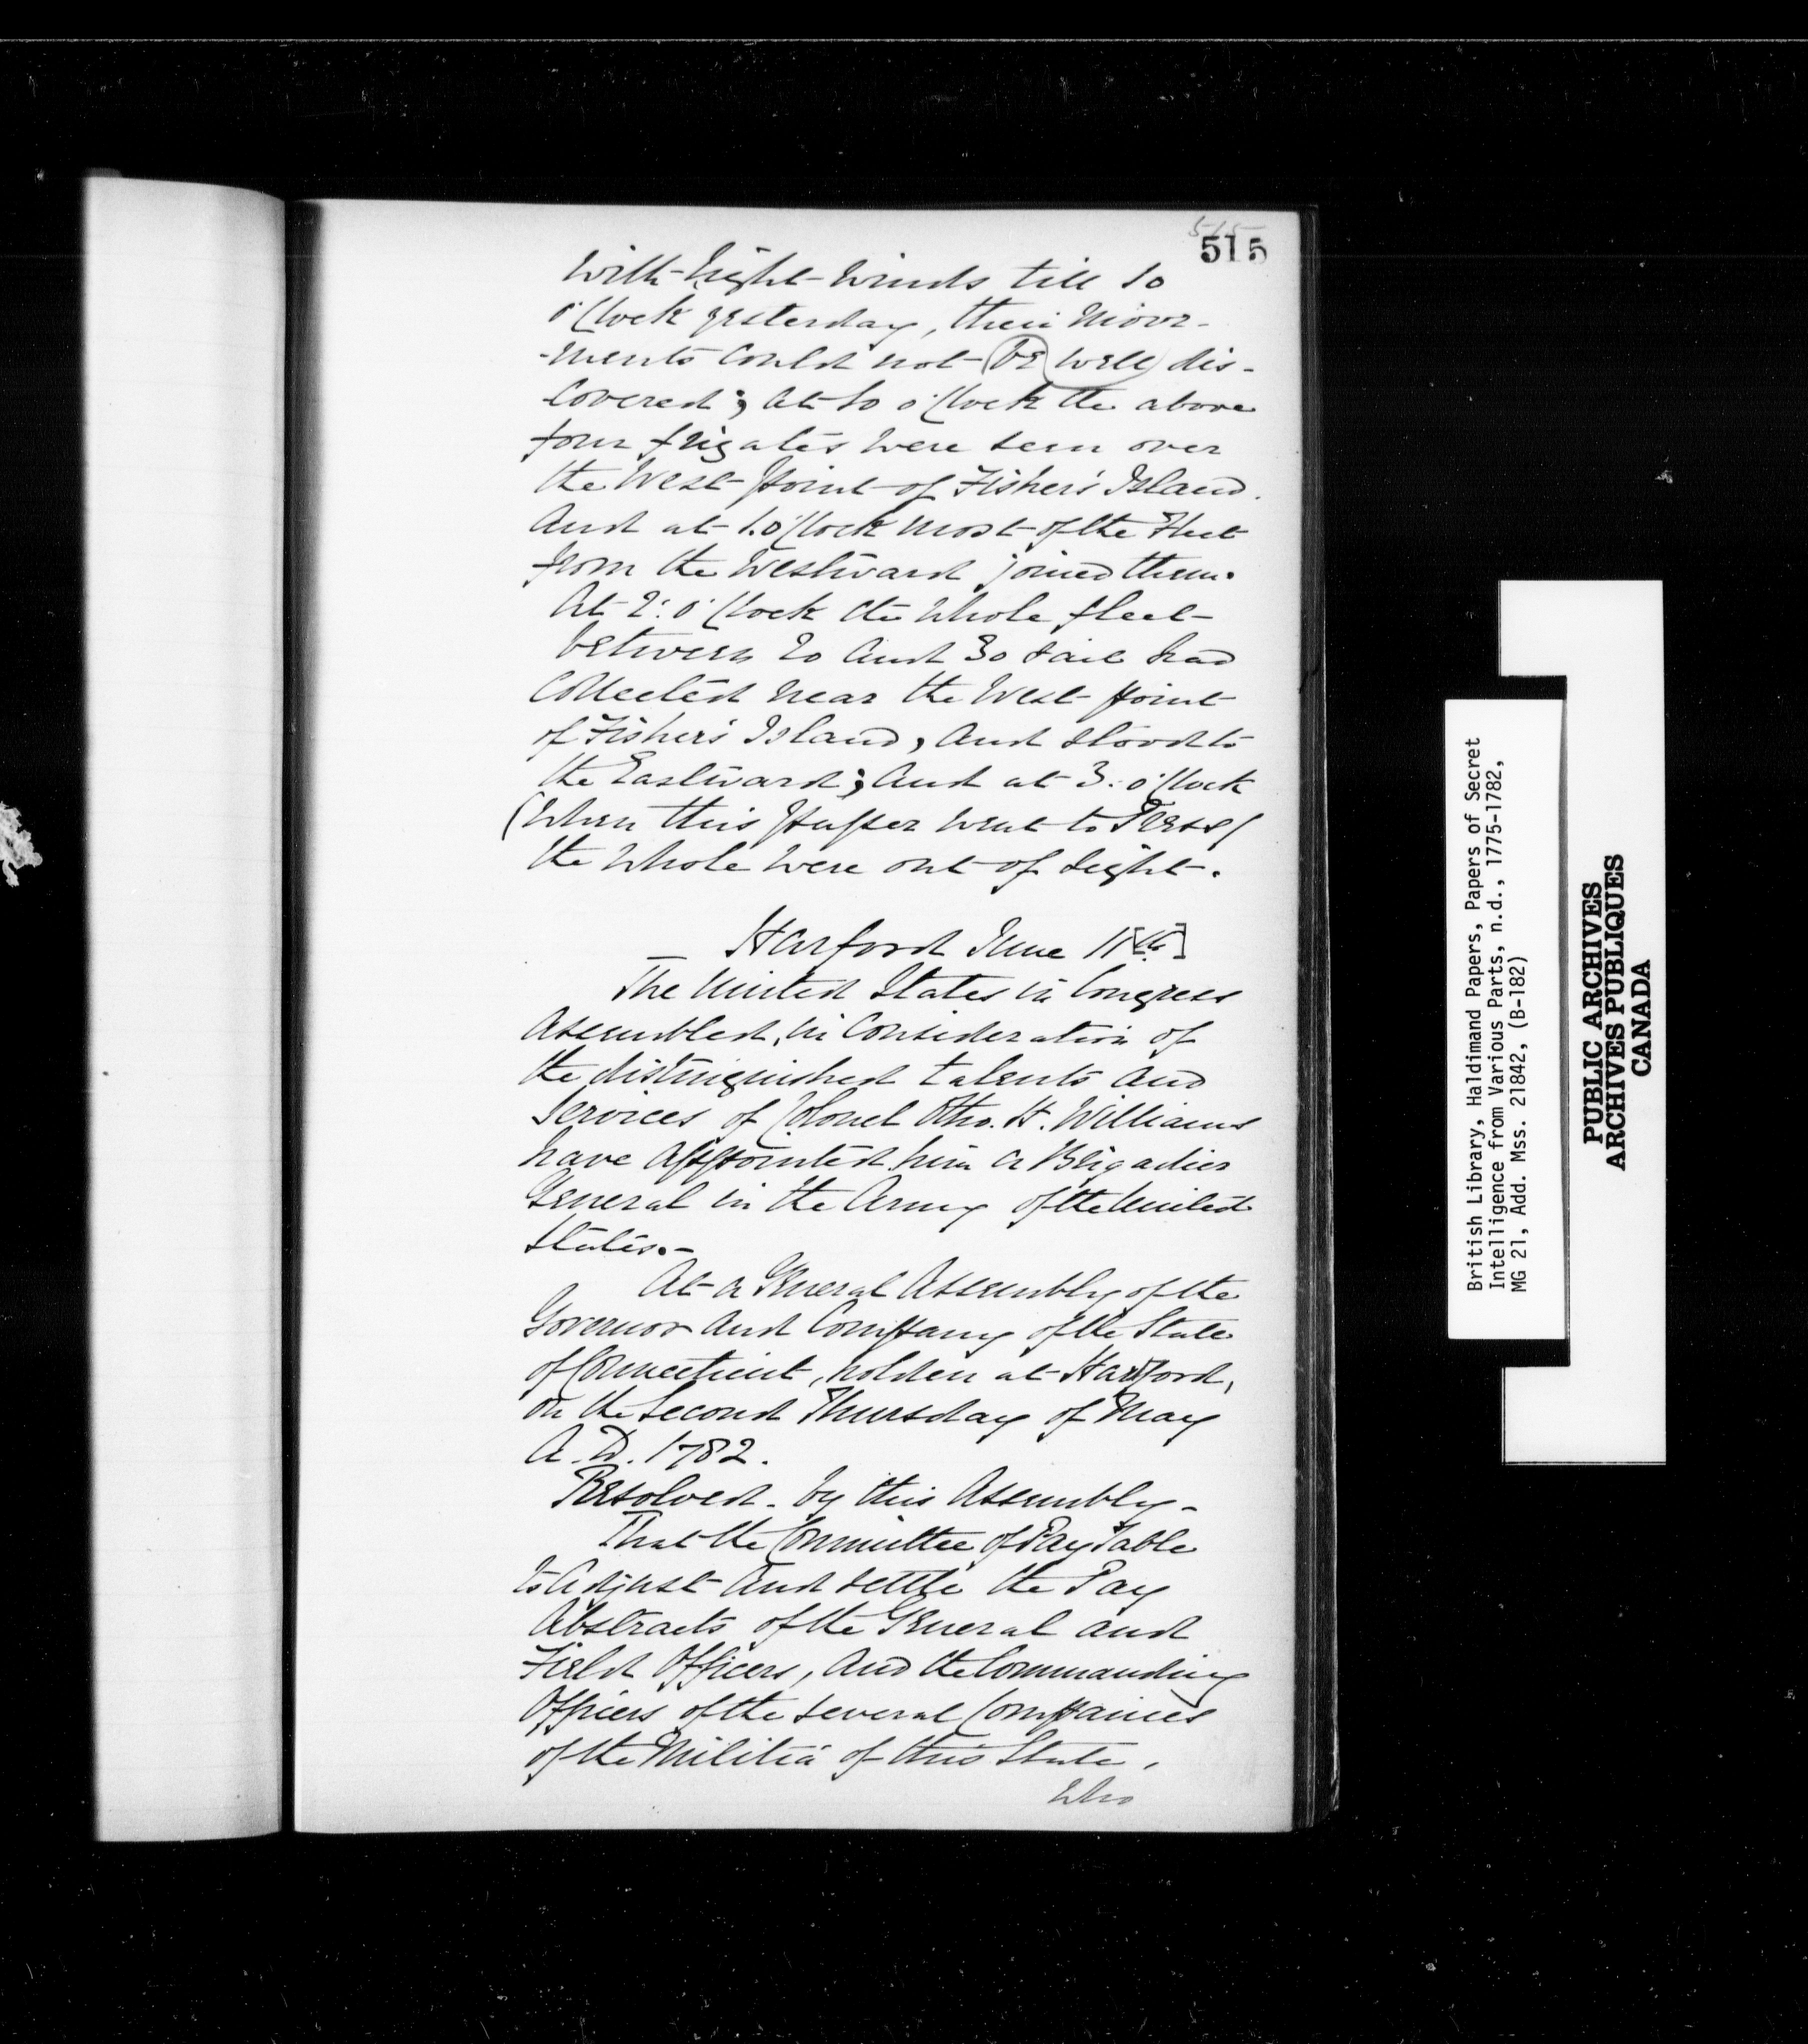 515
515
with light winds till 10
o'Clock yesterday, their move-
-ments could not be well dis-
covered; at 10 o'Clock the above
four frigates were seen over
the West point of Fisher's Island.
And at 1.o'Clock most of the Fleet
from the Westward joined them.
At 2: o'Clock the whole fleet
between 20 and 30 sail had
collected near the West point
of Fisher's Island, and stood to
the Eastward; and at 3: o'Clock
(when this paper went to Press)
the whole were out of sight.
Harford June 11[th]
The United States in Congress
Assembled, in consideration of
the distinguished talents and
services of Colonel Otho. H. Williams
have appointed him a Brigadier
General in the Army of the United
States.-
At a General Assembly of the
Governor and Company of the State
of Connecticut, holden at Hartford,
on the second Thursday of May
A.D. 1782.
Resolved - by this Assembly -
That the Committee of Pay Table
to Adjust and settle the Pay
Abstracts of the General and
Field Officers, and the Commanding
Officers of the several Companies
of the Militia of this State,
who
British Library, Haldimand Papers, Papers of Secret
Intelligence from Various Parts, n.d., 1775-1782,
MG 21, Add. Mss. 21842, (B-182)
PUBLIC ARCHIVES
ARCHIVES PUBLIQUES
CANADA